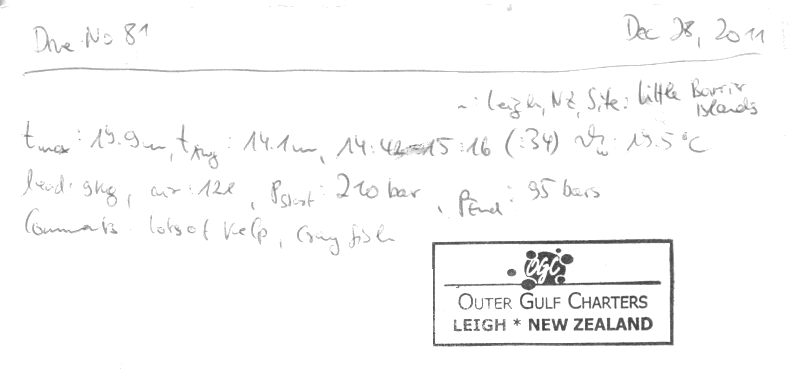 Dive No 81
Dec 28, 2011
~: Leigh, NZ, Site: Little Barrier Islands
tmax: 19.9m, tAvg: 14.1m, 14:42-15:16 (:34) ϑw: 19.5°C
lead: 9kg, air: 12l, PStart: 210 bar, PEnd: 95 bars
Comments: lots of kelp, cray fish
OGC
OUTER GULF CHARTERS
LEIGH * NEW ZEALAND